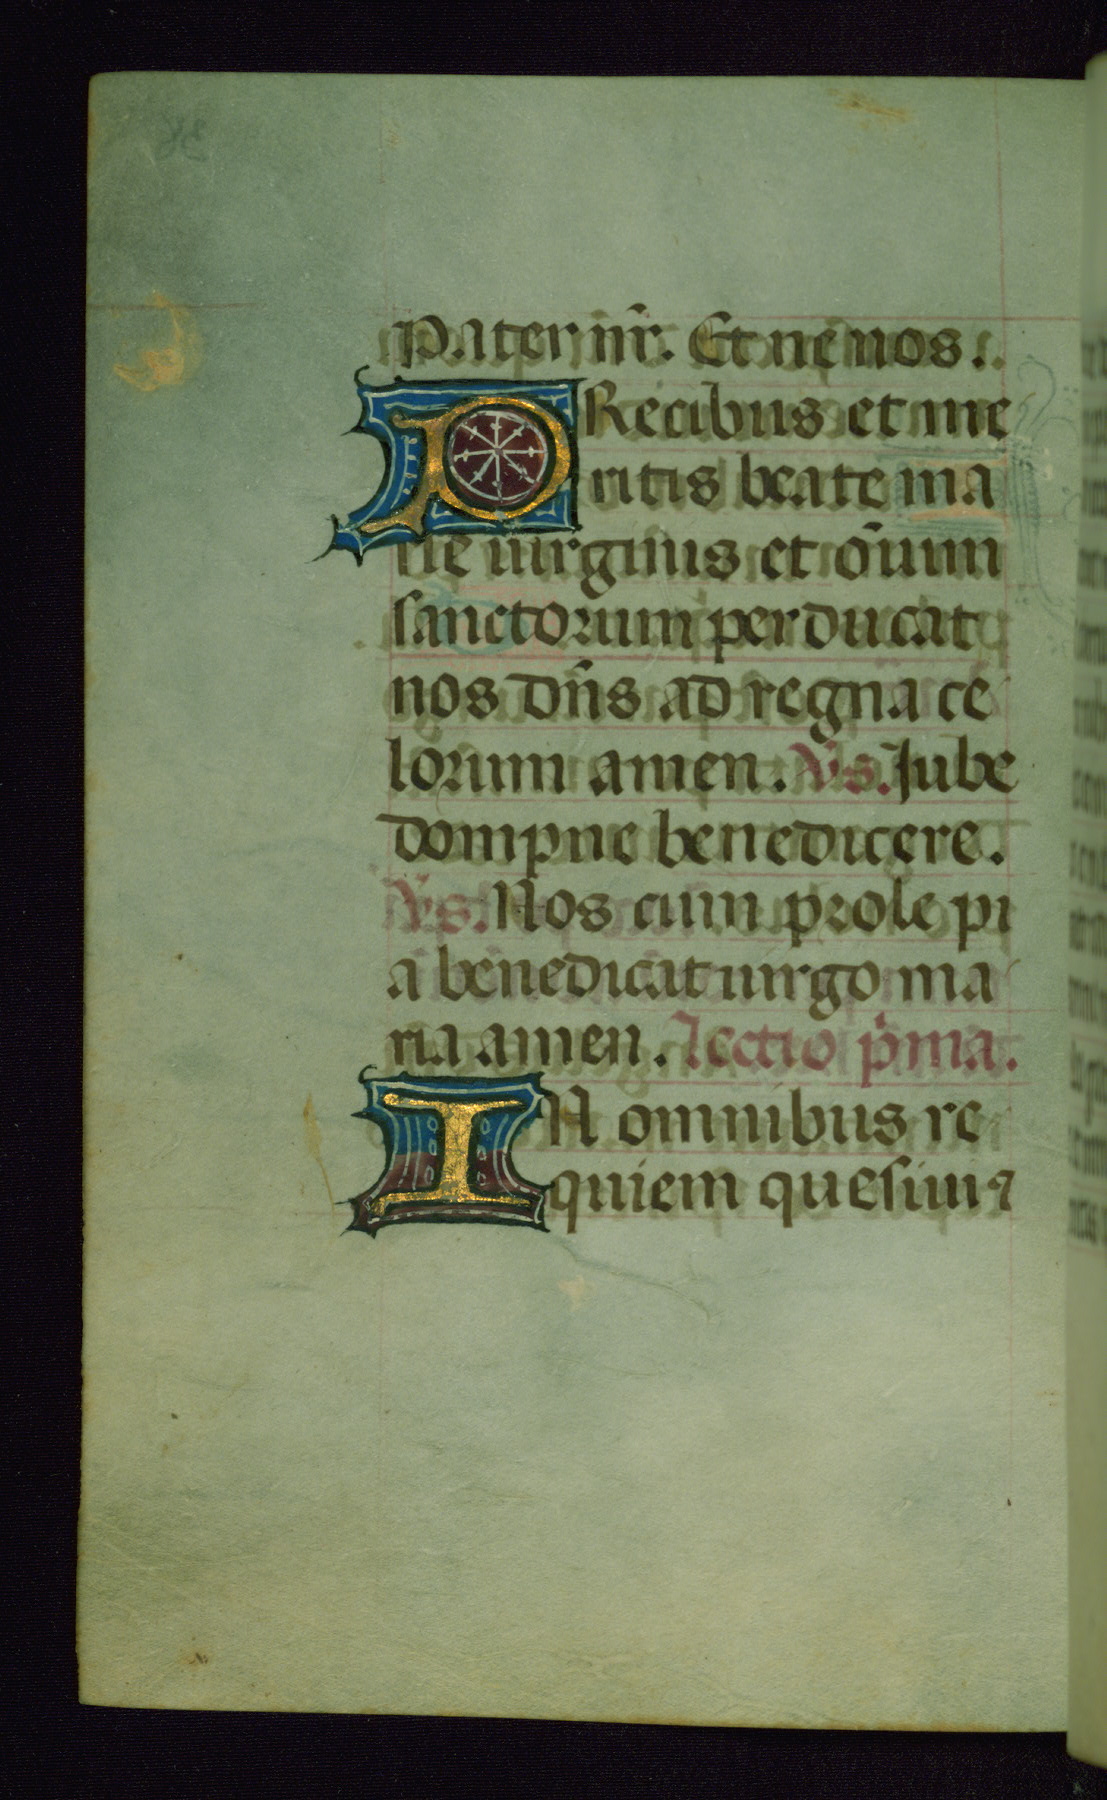 Pater nr̄. Et ne nos.
PRecibus et me
ritis beate ma
rie uirginis et oīum
sanctorum perducat
nos dn̄s ad regna ce
lorum amen. Vs. Jube
dompne benedicere.
Vs. Nos cum prole pi
a benedicat uirgo ma
ria amen. lectio pͥma.
IN omnibus re
quiem quesiui ⁊